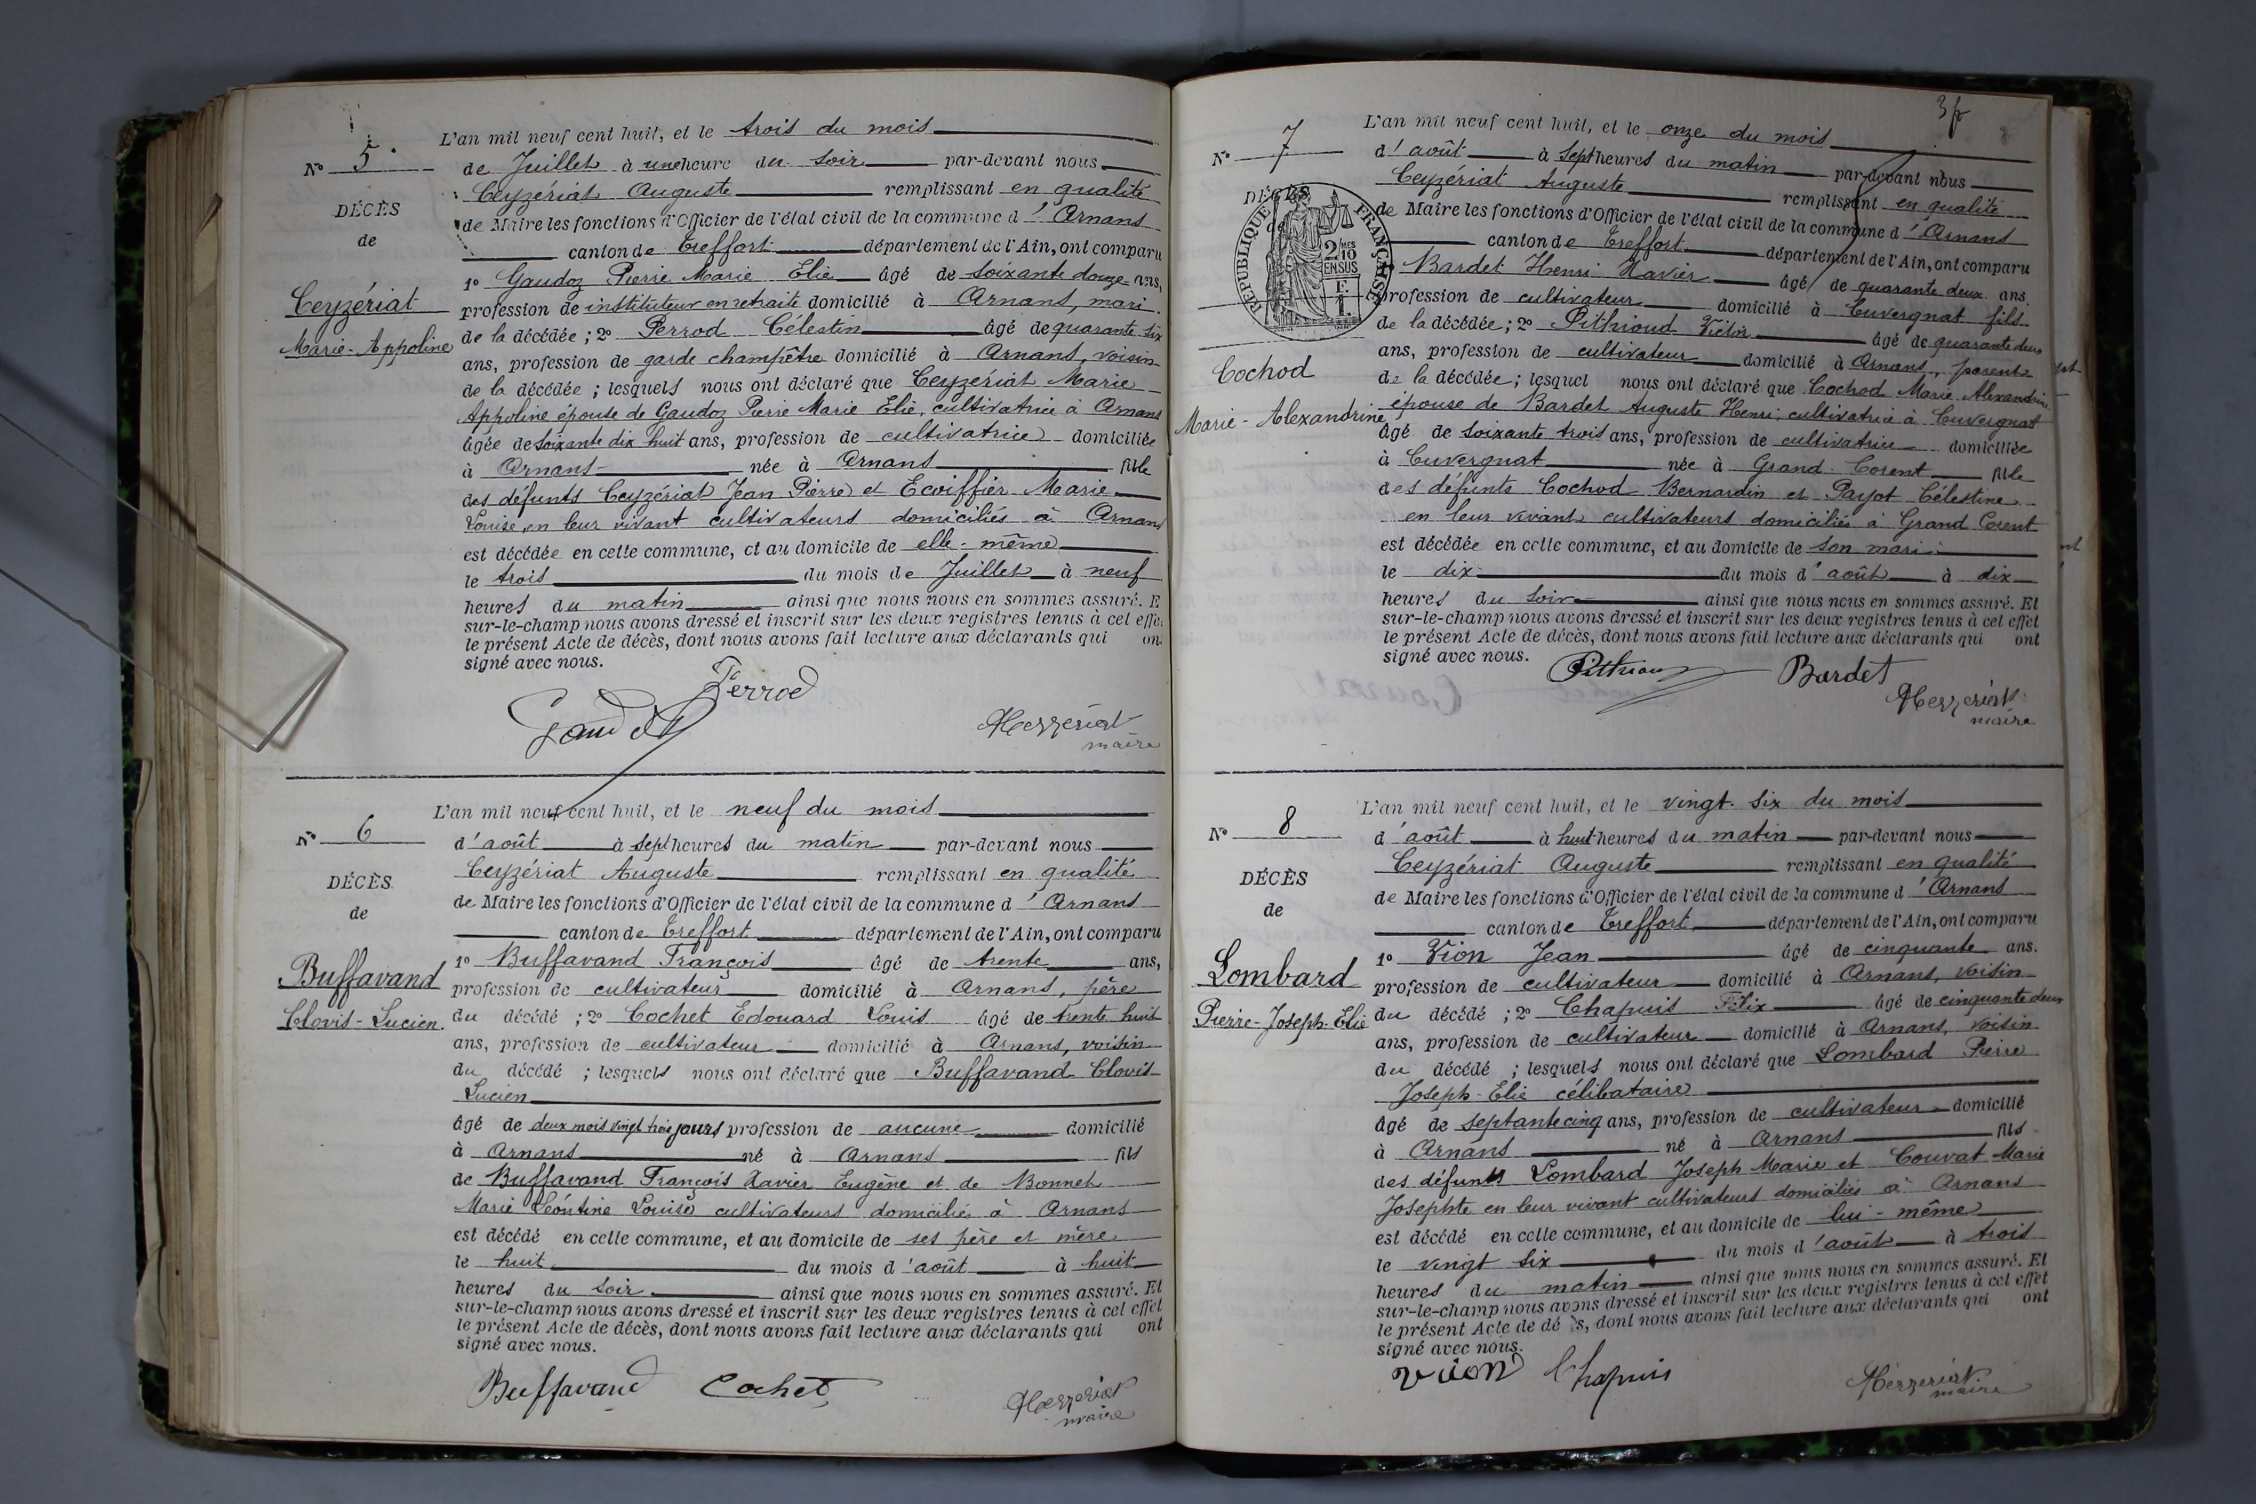 L'an mil neuf cent huit, et le trois du mois
No 5.
de Juillet à une heure du soir par-devant nous
Ceyzériat Auguste remplissant en qualité
DÉCÈS
de Maire les fonctions d'Officier de l'état civil de la commune d'Arnans
de
canton de Treffort département de l'Ain, ont comparu
1o Gaudoz Pierre Marie Elie âgé de soixante douze ans,
Ceyzériat
profession de instituteur en retraite domicilié à Arnans, mari
Marie-Appoline
de la décédée ; 2o Perrod Célestin âgé de quarante six
ans, profession de garde champêtre domicilié à Arnans, voisin
de la décédée ; lesquels nous ont déclaré que Ceyzériat Marie
Appoline épouse de Gaudoz Pierre Marie Elie, cultivatrice à Arnans
âgée de soixante dix huit ans, profession de cultivatrice domiciliée
à Arnans née à Arnans fille
des défunts Ceyzériat Jean Pierre et Ecoiffier Marie
Louise, en leur vivant cultivateurs domiciliés à Arnans
est décédée en cette commune, et au domicile de elle-même
le trois du mois de Juillet à neuf
heures du matin ainsi que nous nous en sommes assuré. E
sur-le-champ nous avons dressé et inscrit sur les deux registres tenus à cet effet
le présent Acte de décès, dont nous avons fait lecture aux déclarants qui on
signé avec nous.
Perrod
Gaudoz
ACeyzériat
maire
L'an mil neuf cent huit, et le neuf du mois
No 6
d'août à sept heures du matin par-devant nous
Ceyzériat Auguste remplissant en qualité
DÉCÈS
de Maire les fonctions d'Officier de l'état civil de la commune d'Arnans
de
canton de Treffort département de l'Ain, ont comparu
1o Buffavand François âgé de trente ans,
Buffavand
profession de cultivateur domicilié à Arnans, père
Clovis-Lucien.
du décédé ; 2o Cochet Edouard Louis âgé de trente huit
ans, profession de cultivateur domicilié à Arnans, voisin
du décédé ; lesquels nous ont déclaré que Buffavand Clovis
Lucien
âgé de deux mois vingt trois jours profession de aucune domicilié
à Arnans né à Arnans fils
de Buffavand François Xavier Eugène et de Bonnet
Marie Léontine Louise cultivateurs domiciliés à Arnans
est décédé en cette commune, et au domicile de ses père et mère
le huit du mois d'août à huit
heures du soir ainsi que nous nous en sommes assuré. Et
sur-le-champ nous avons dressé et inscrit sur les deux registres tenus à cet effet
le présent Acte de décès, dont nous avons fait lecture aux déclarants qui ont
signé avec nous.
Buffavand Cochet
ACeyzériat
maire
L'an mil neuf cent huit, et le onze du mois
No 7
d'août à sept heures du matin par-devant nous
Ceyzériat Auguste remplissant en qualité
DÉCÈS
de Maire les fonctions d'Officier de l'état civil de la commune d'Arnans
RÉPUBLIQUE FRANÇAISE
2/10 EN SUS
F. 1.
canton de Treffort département de l'Ain, ont comparu
Bardet Henri Xavier âgé de quarante deux ans,
profession de cultivateur domicilié à Cuvergnat fils
de la décédée ; 2o Pithioud Victor âgé de quarante deux
Cochod
ans, profession de cultivateur domicilié à Arnans, parent
de la décédée ; lesquel nous ont déclaré que Cochod Marie Alexandrine
Marie-Alexandrine
épouse de Bardet Auguste Henri, cultivatrice à Cuvergnat
âgé de soixante trois ans, profession de cultivatrice domiciliée
à Cuvergnat née à Grand-Corent fille
des défunts Cochod Bernardin et Payot Célestine
en leur vivant cultivateurs domiciliés à Grand Corent
est décédée en cette commune, et au domicile de son mari
le dix du mois d'août à dix
heures du soir ainsi que nous nous en sommes assuré. Et
sur-le-champ nous avons dressé et inscrit sur les deux registres tenus à cet effet
le présent Acte de décès, dont nous avons fait lecture aux déclarants qui ont
signé avec nous.
Pithioud Bardet
ACeyzériat
maire
L'an mil neuf cent huit, et le vingt-six du mois
No 8
d'août à huit heures du matin par-devant nous
Ceyzériat Auguste remplissant en qualité
DÉCÈS
de Maire les fonctions d'Officier de l'état civil de la commune d'Arnans
de
canton de Treffort département de l'Ain, ont comparu
1o Vion Jean âgé de cinquante ans.
Lombard
profession de cultivateur domicilié à Arnans, voisin
Pierre-Joseph-Elie
du décédé ; 2o Chapuis Félix âgé de cinquante deux
ans, profession de cultivateur domicilié à Arnans, voisin
du décédé ; lesquels nous ont déclaré que Lombard Pierre
Joseph-Elie célibataire
âgé de septante cinq ans, profession de cultivateur domicilié
à Arnans né à Arnans fils
des défunts Lombard Joseph Marie et Couvat Marie
Josephte en leur vivant cultivateurs domiciliés à Arnans
est décédé en cette commune, et au domicile de lui-même
le vingt six du mois d'août à trois
heures du matin ainsi que nous nous en sommes assuré. Et
sur-le-champ nous avons dressé et inscrit sur les deux registres tenus à cet effet
le présent Acte de décès, dont nous avons fait lecture aux déclarants qui ont
signé avec nous.
Vuion Chapuis
ACeyzériat
maire